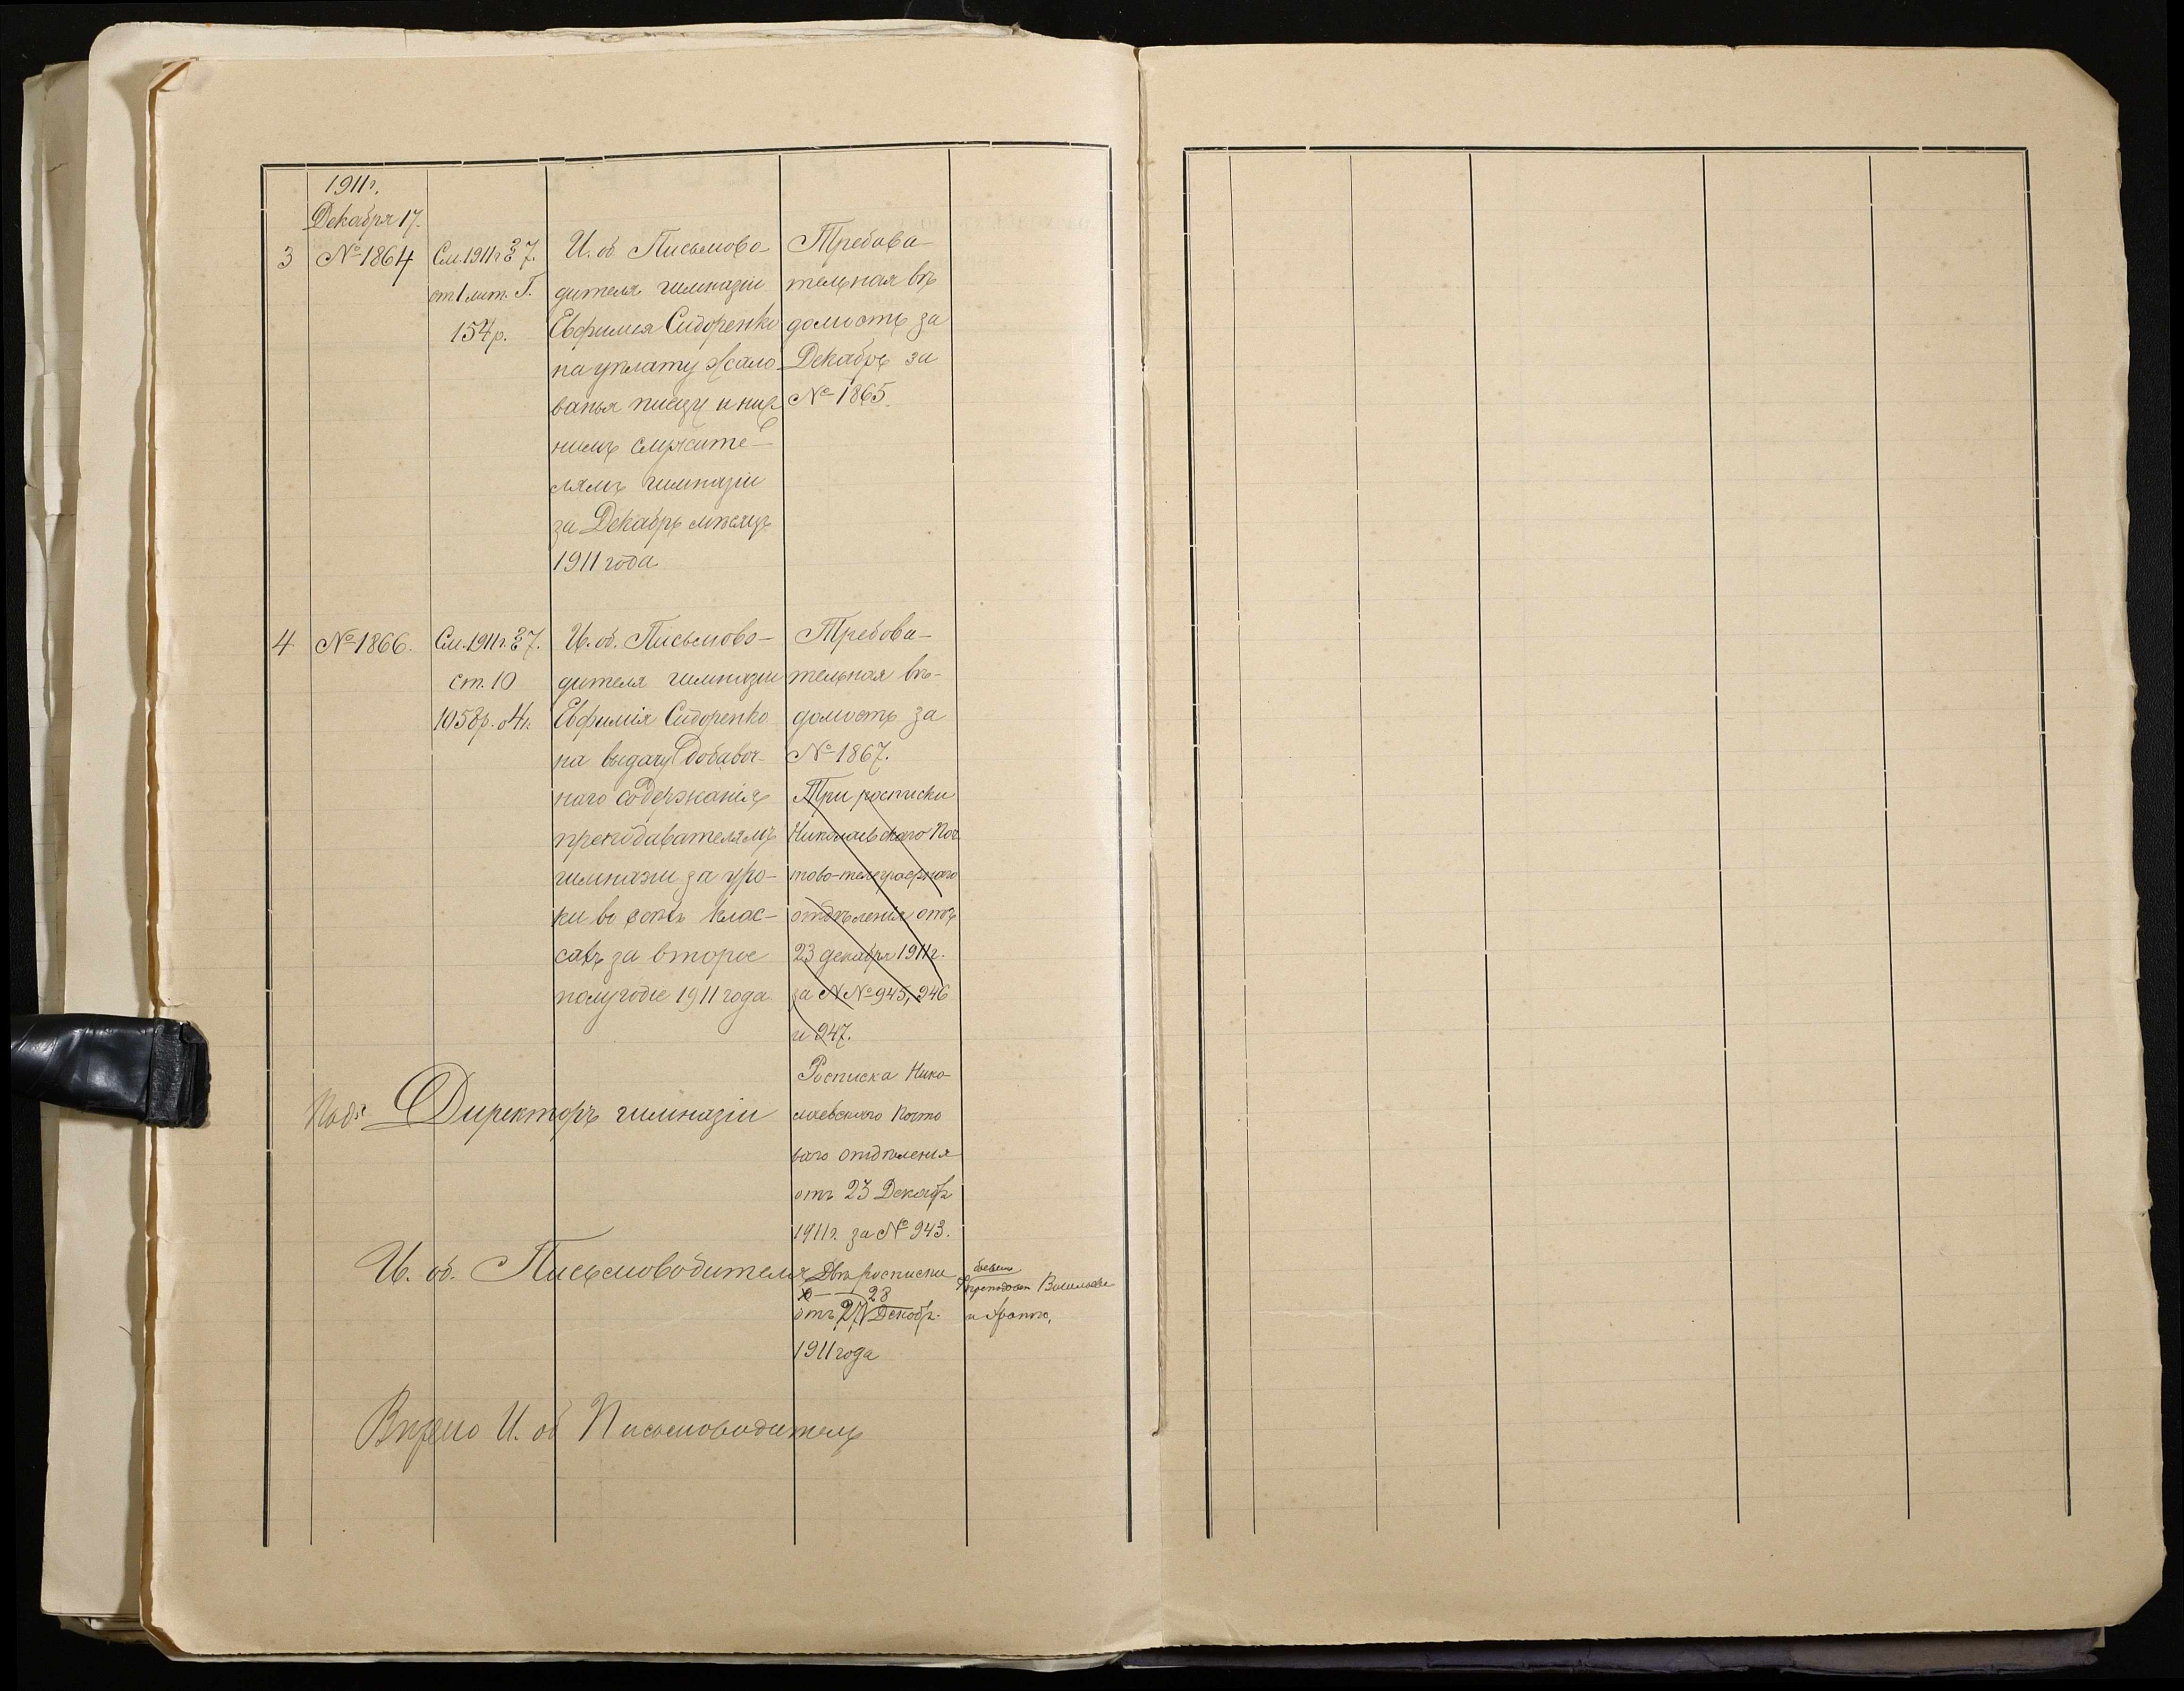 1911г.
Декабря 17.
3
№ 1864
См. 1911 г. § 7.
ст. 1 лит. Г.
154 р.
И. об. Письмово-
дителя гимназіи
Евфимія Сидоренко
на уплату жало-
ванья писцу и низ-
шимъ служите-
лямъ гимназіи
за Декабрь мѣсяцъ
1911 года
Требова-
тельная вѣ-
домость за
Декабрь за
№ 1865.
4
№ 1866.
См. 1911 г. § 7.
ст. 10
1058 р. 04 к.
И. об. Письмово-
дителя гимназіи
Евфимія Сидоренко
на выдачу добавоч-
наго содержанія
преподавателямъ
гимназіи за уро-
ки во клас-
сахъ за второе
полугодіе 1911 года
Требова-
тельная вѣ-
домость за
№ 1867.
Три росписки
Николаевскаго Поч-
тово-телеграфнаго
отдѣленія отъ
23 декабря 1911 г.
за №№ 945, 946
и 947.
Росписка Нико-
лаевскаго Почто
ваго отдѣления
отъ 23 Декабр
1911 г. за № 943.
Двѣ росписки
28
отъ 27 Декабр.
1911 года
и
Директоръ гимназіи
И. об. Письмоводителя
Вѣрно И. об Письмоводитель